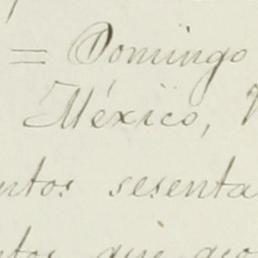 = Domingo
México,
ntos sesenta
ntos que